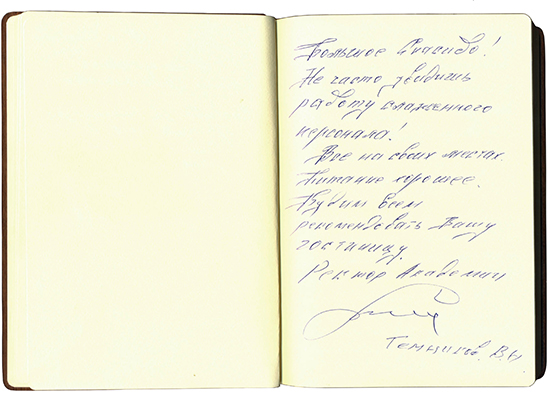 Большое Спасибо!
Не часто увидишь
работу слаженного
персонала!
Все на своих местах.
Питание хорошее.
Будим всем
рекомендовать Вашу
гостиницу.
Ректор Академии